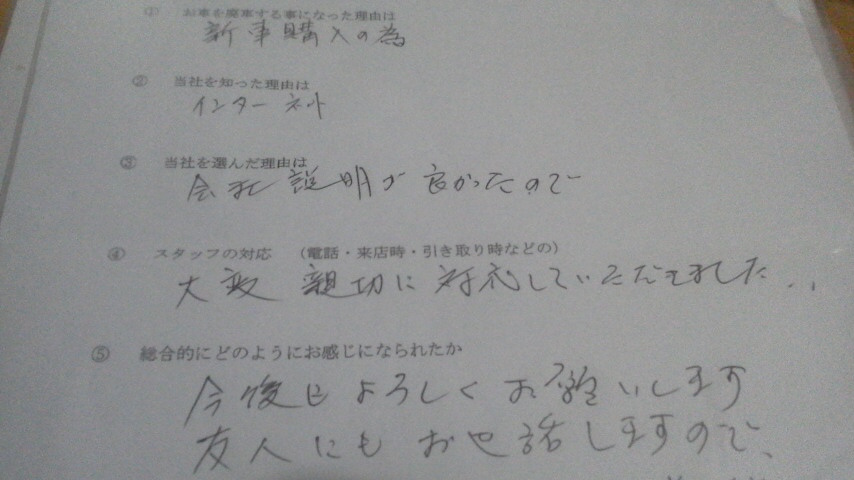 ① お車を廃車する事になった理由は
新車購入の為
② 当社を知った理由は
インターネット
③ 当社を選んだ理由は
会社説明が良かったので
④ スタッフの対応 (電話・来店時・引き取り時などの)
大変 親切に対応していただきました..
⑤ 総合的にどのようにお感じになられたか
今後もよろしくお願いします
友人にもお世話しますので、